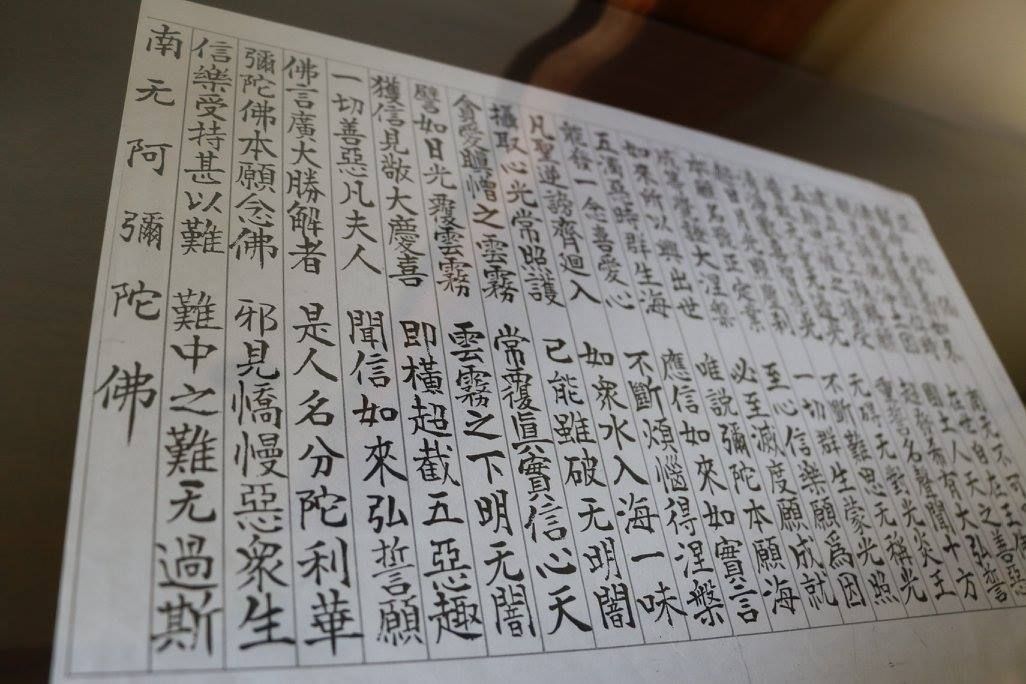 國土人天之善惡
超發希有大弘誓
重誓名聲聞十方
无碍无對光炎王
不斷難思无稱光
一切群生蒙光照
本願名號正定業 至心信樂願爲因
成等覺證大涅槃 必至滅度願成就
如來所以興出世 唯說彌陀本願海
五濁惡時群生海 應信如來如實言
能發一念喜愛心 不斷煩惱得涅槃
凡聖逆謗齊廻入 如衆水入海一味
攝取心光常照護 已能雖破无明闇
貪愛瞋憎之雲霧 常覆眞實信心天
譬如日光覆雲霧 雲霧之下明无闇
獲信見敬大慶喜 即橫超截五惡趣
一切善惡凡夫人 聞信如來弘誓願
佛言廣大勝解者 是人名分陀利華
彌陀佛本願念佛 邪見憍慢惡衆生
信樂受持甚以難 難中之難无過斯
南无阿彌陀佛